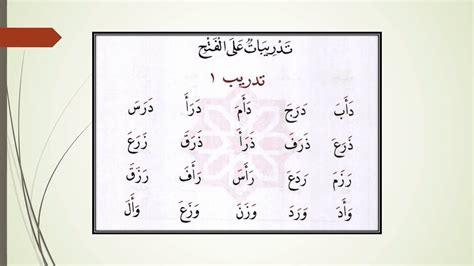 تَدْرِيبَاتٌ عَلَى الْفَتْحِ
تدريب ١
دَأَبَ دَرَجَ دَأَمَ دَرَأَ دَرَسَ
ذَرَعَ ذَرَفَ ذَرَأَ ذَرَقَ زَرَعَ
رَزَمَ رَدَعَ رَأَسَ رَأَفَ رَزَقَ
وَأَدَ وَرَدَ وَزَنَ وَزَعَ وَأَلَ